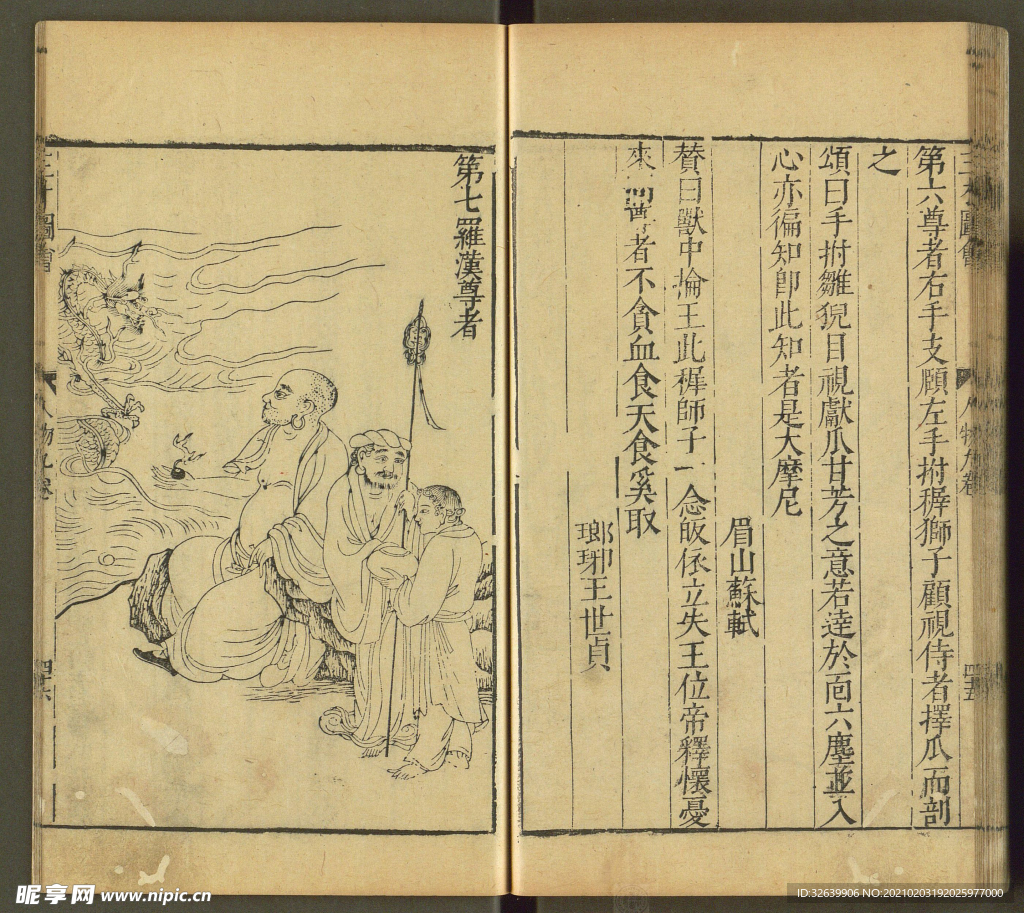 三才圖會
人物九卷
四十五
第六尊者右手支頤左手拊穉獅子顧視侍者擇瓜而剖
之
頌曰手拊雛猊目視獻瓜甘芳之意若達於面六塵並入
心亦徧知卽此知者是大摩尼
眉山蘇軾
贊曰獸中
王此穉師子一念皈依立失王位帝釋懷憂
來
尊者不貪血食天食奚取
瑯琊王世貞
第七羅漢尊者
三才圖會
人物九卷
四十六
昵享网 www.nipic.cn
ID:32639906 NO:20210203192025977000